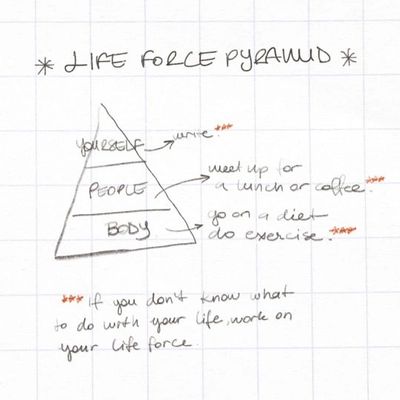 * LIFE FORCE PYRAMID *
YOURSELF
write ***
PEOPLE
meet up for
a lunch or coffee. ***
BODY
go on a diet
do exercise. ***
*** if you don't know what
to do with your life, work on
your life force.